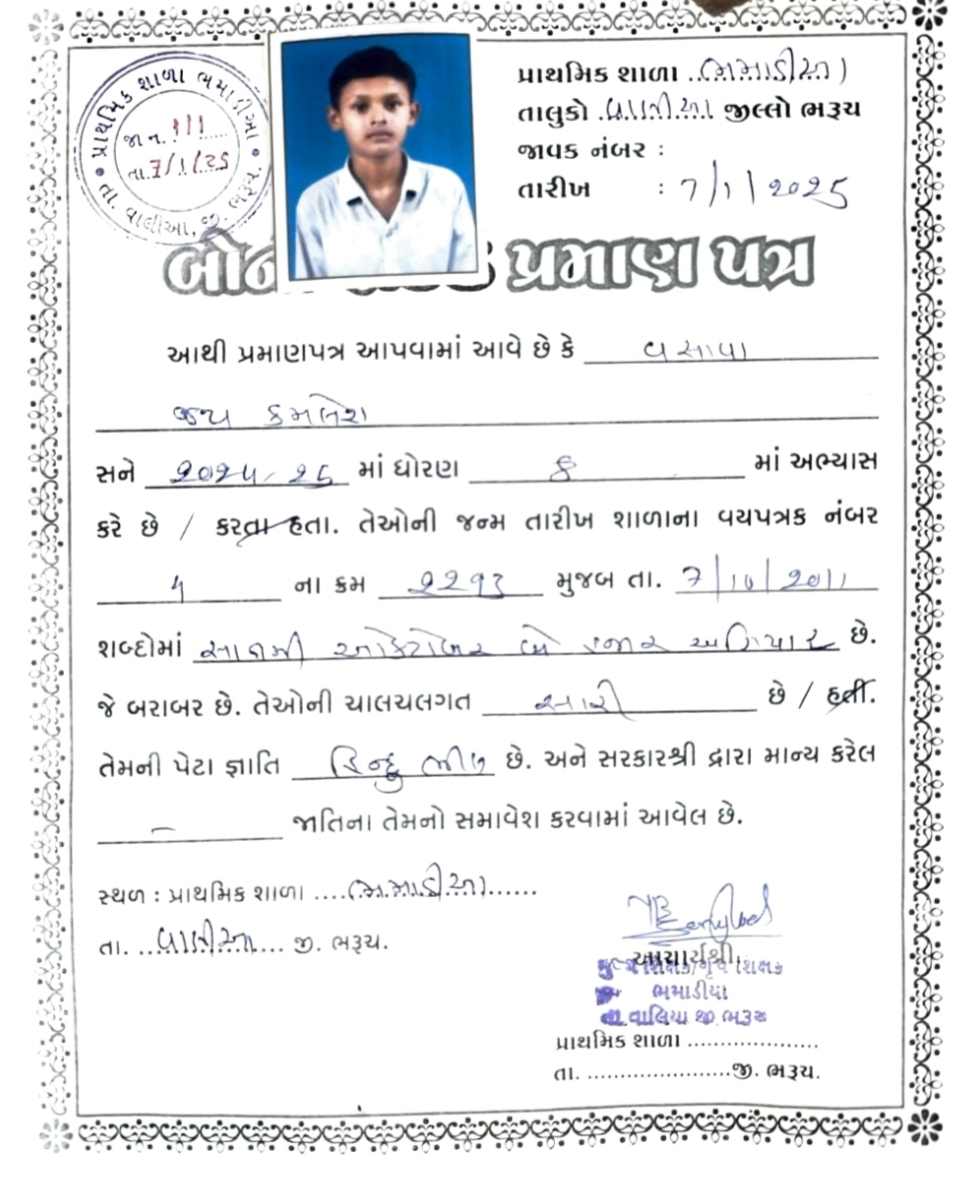 પ્રાથમિક શાળા ભમાડીઆ
જા.ન. 111
તા. 7/1/25
તા. વાલીઆ, જી. ભરૂચ.
પ્રાથમિક શાળા ..ભમાડીઆ
તાલુકો .વાલીઆ. જીલ્લો ભરૂચ
જાવક નંબર :
તારીખ : 7/1/2025
પ્રમાણ પત્ર
આથી પ્રમાણપત્ર આપવામાં આવે છે કે વસાવા
જય કમલેશ
સને ૨૦૨૪/૨૫ માં ધોરણ ૮ માં અભ્યાસ
કરે છે / કરતા હતા. તેઓની જન્મ તારીખ શાળાના વયપત્રક નંબર
૫ ના ક્રમ ૨૨૧૩ મુજબ તા. 7/10/2011
શબ્દોમાં સાતમી ઓક્ટોબર બે હજાર અગિયાર છે.
જે બરાબર છે. તેઓની ચાલચલગત સારી છે / હતી.
તેમની પેટા જ્ઞાતિ હિન્દુ ભીલ છે. અને સરકારશ્રી દ્વારા માન્ય કરેલ
- જાતિના તેમનો સમાવેશ કરવામાં આવેલ છે.
સ્થળ : પ્રાથમિક શાળા ....ભમાડીઆ......
તા. ...વાલીઆ.... જી. ભરૂચ.
આચાર્યશ્રી,
ભમાડીયા
તા.વાલિયા જી.ભરૂચ
પ્રાથમિક શાળા ....................
તા. .......................જી. ભરૂચ.